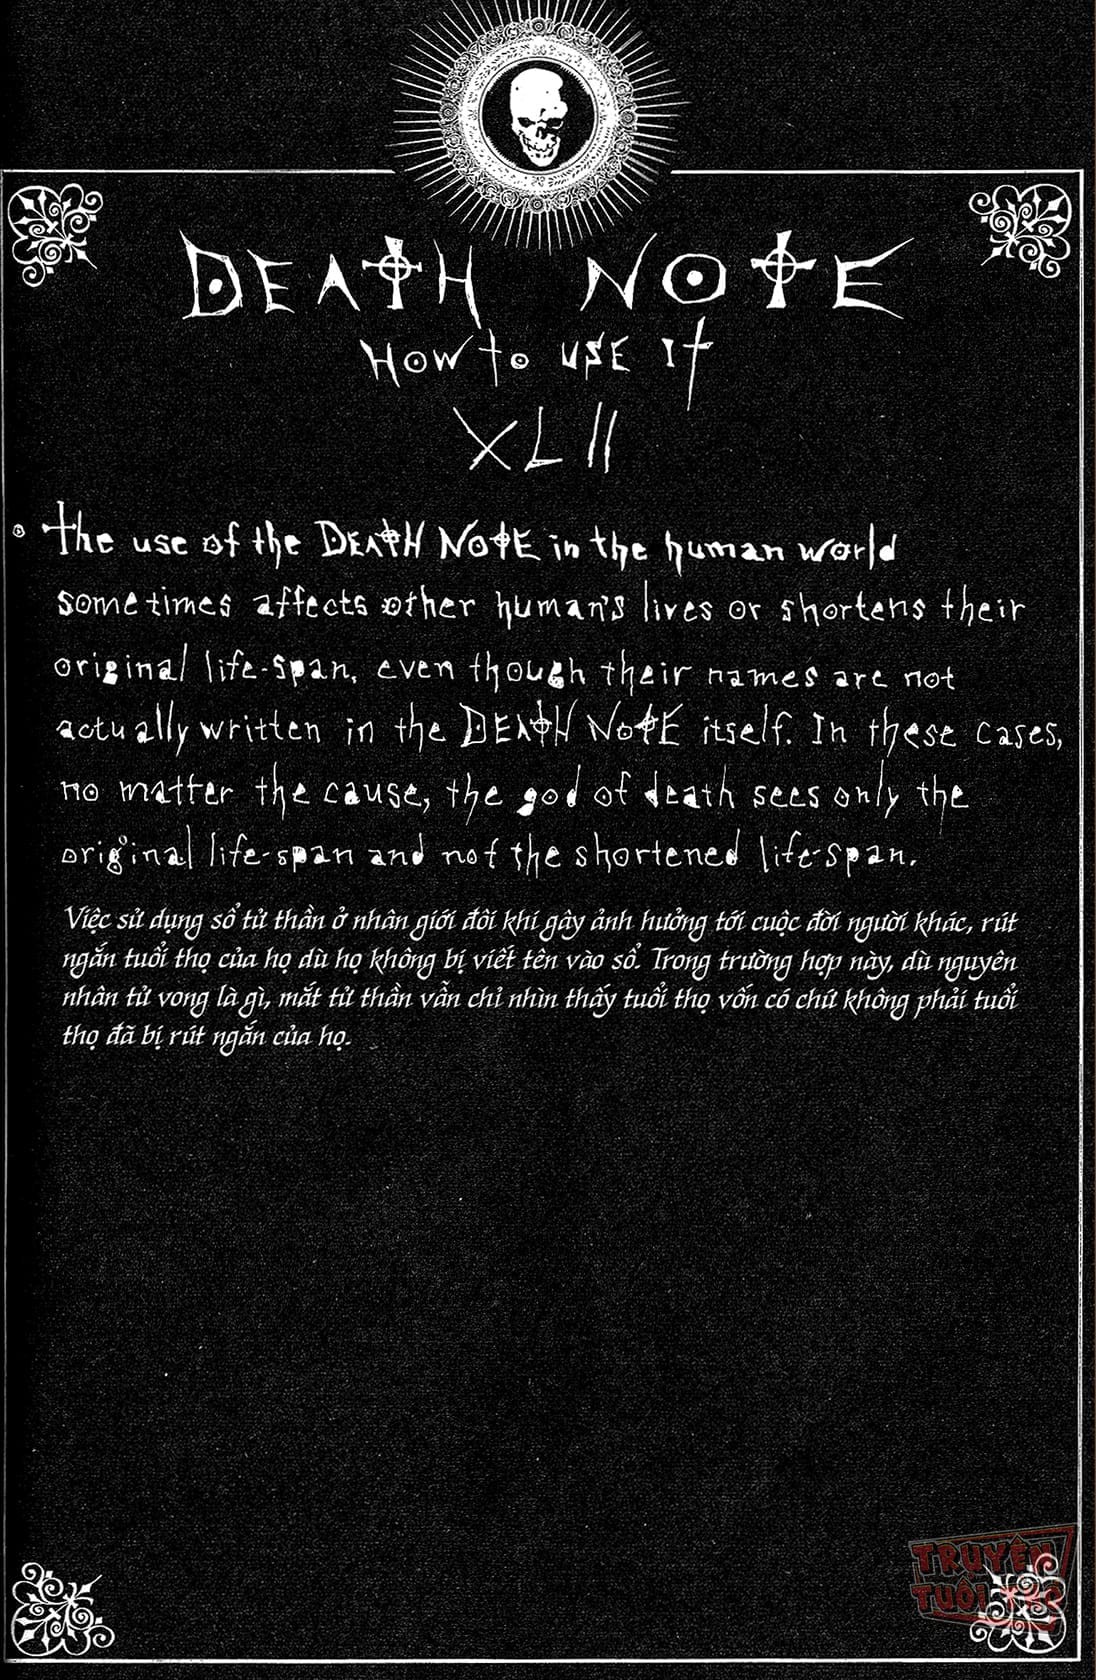 DEATH NOTE
HOW to USE It
XLII
the use of the DEATH NOTE in the human world
sometimes affects other human's lives or shortens their
original life-span, even though their names are not
actually written in the DEATH NOTE itself. In these cases,
no matter the cause, the god of death sees only the
original life-span and not the shortened life-span.
Việc sử dụng sổ tử thần ở nhân giới đôi khi gây ảnh hưởng tới cuộc đời người khác, rút
ngắn tuổi thọ của họ dù họ không bị viết tên vào sổ. Trong trường hợp này, dù nguyên
nhân tử vong là gì, mắt tử thần vẫn chỉ nhìn thấy tuổi thọ vốn có chứ không phải tuổi
thọ đã bị rút ngắn của họ.
TRUYỆN
TUỔI THƠ